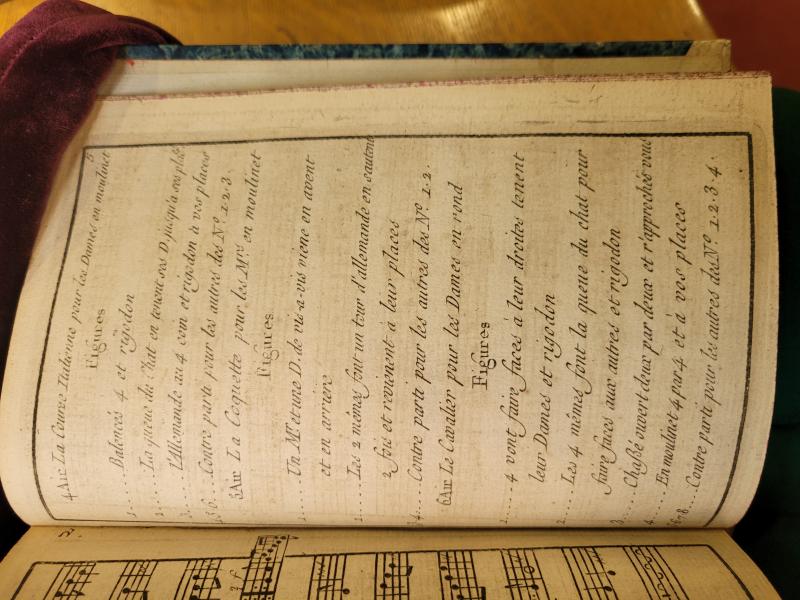 5
4 Air La Course Italienne pour les Dames en moulinet
Figures
1.... Balencés 4 et rigodon
2.... La queue du Chat en tenent ses D. jusqu'a ses plac
3.... L'Allemande au 4 coins et rigodon à vos places
4.5.6. Contre parti pour les autres des No. 1.2.3.
5 Air La Coquette pour les Mrs en moulinet
Figures
1.... Un Mr. et une D. de vis-a-vis viene en avent
et en arriere
2.... Les 2 mêmes font un tour d'allemande en sautent
2 fois et revienent à leur places
3.4.... Contre parti pour les autres des No. 1.2.
6 Air Le Cavalier pour les Dames en rond
Figures
1.... 4 vont faire faces à leur droites tenent
leur Dames et rigodon
2.... Les 4 mêmes font la queue du chat pour
faire faces aux autres et rigodon
3.... Chaßé ouvert deux par deux et r'approchés vous
4.... En moulinet 4 par 4 et à vos places
5.6.7.8.... Contre parti pour les autres des No. 1.2.3.4.
2.